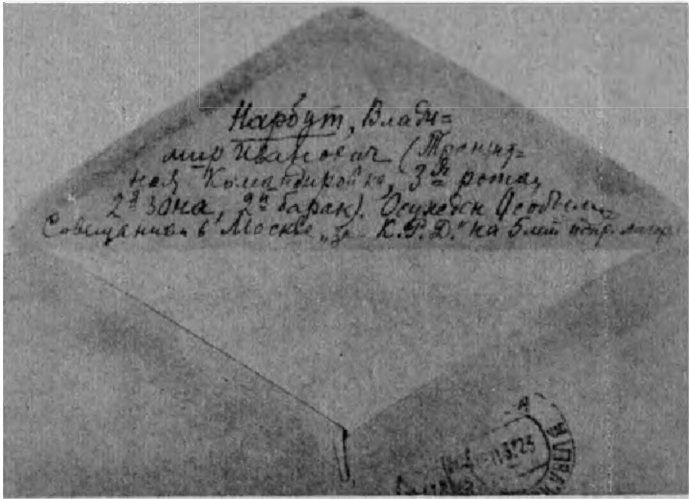 Нарбут, Влади=
мир Иванович (Транзит=
ная Командировка, 3я рота,
2я зона, 2й барак). Осужден Особым
Совещанием в Москве „за К.Р.Д." на 5 лет испр. лагер